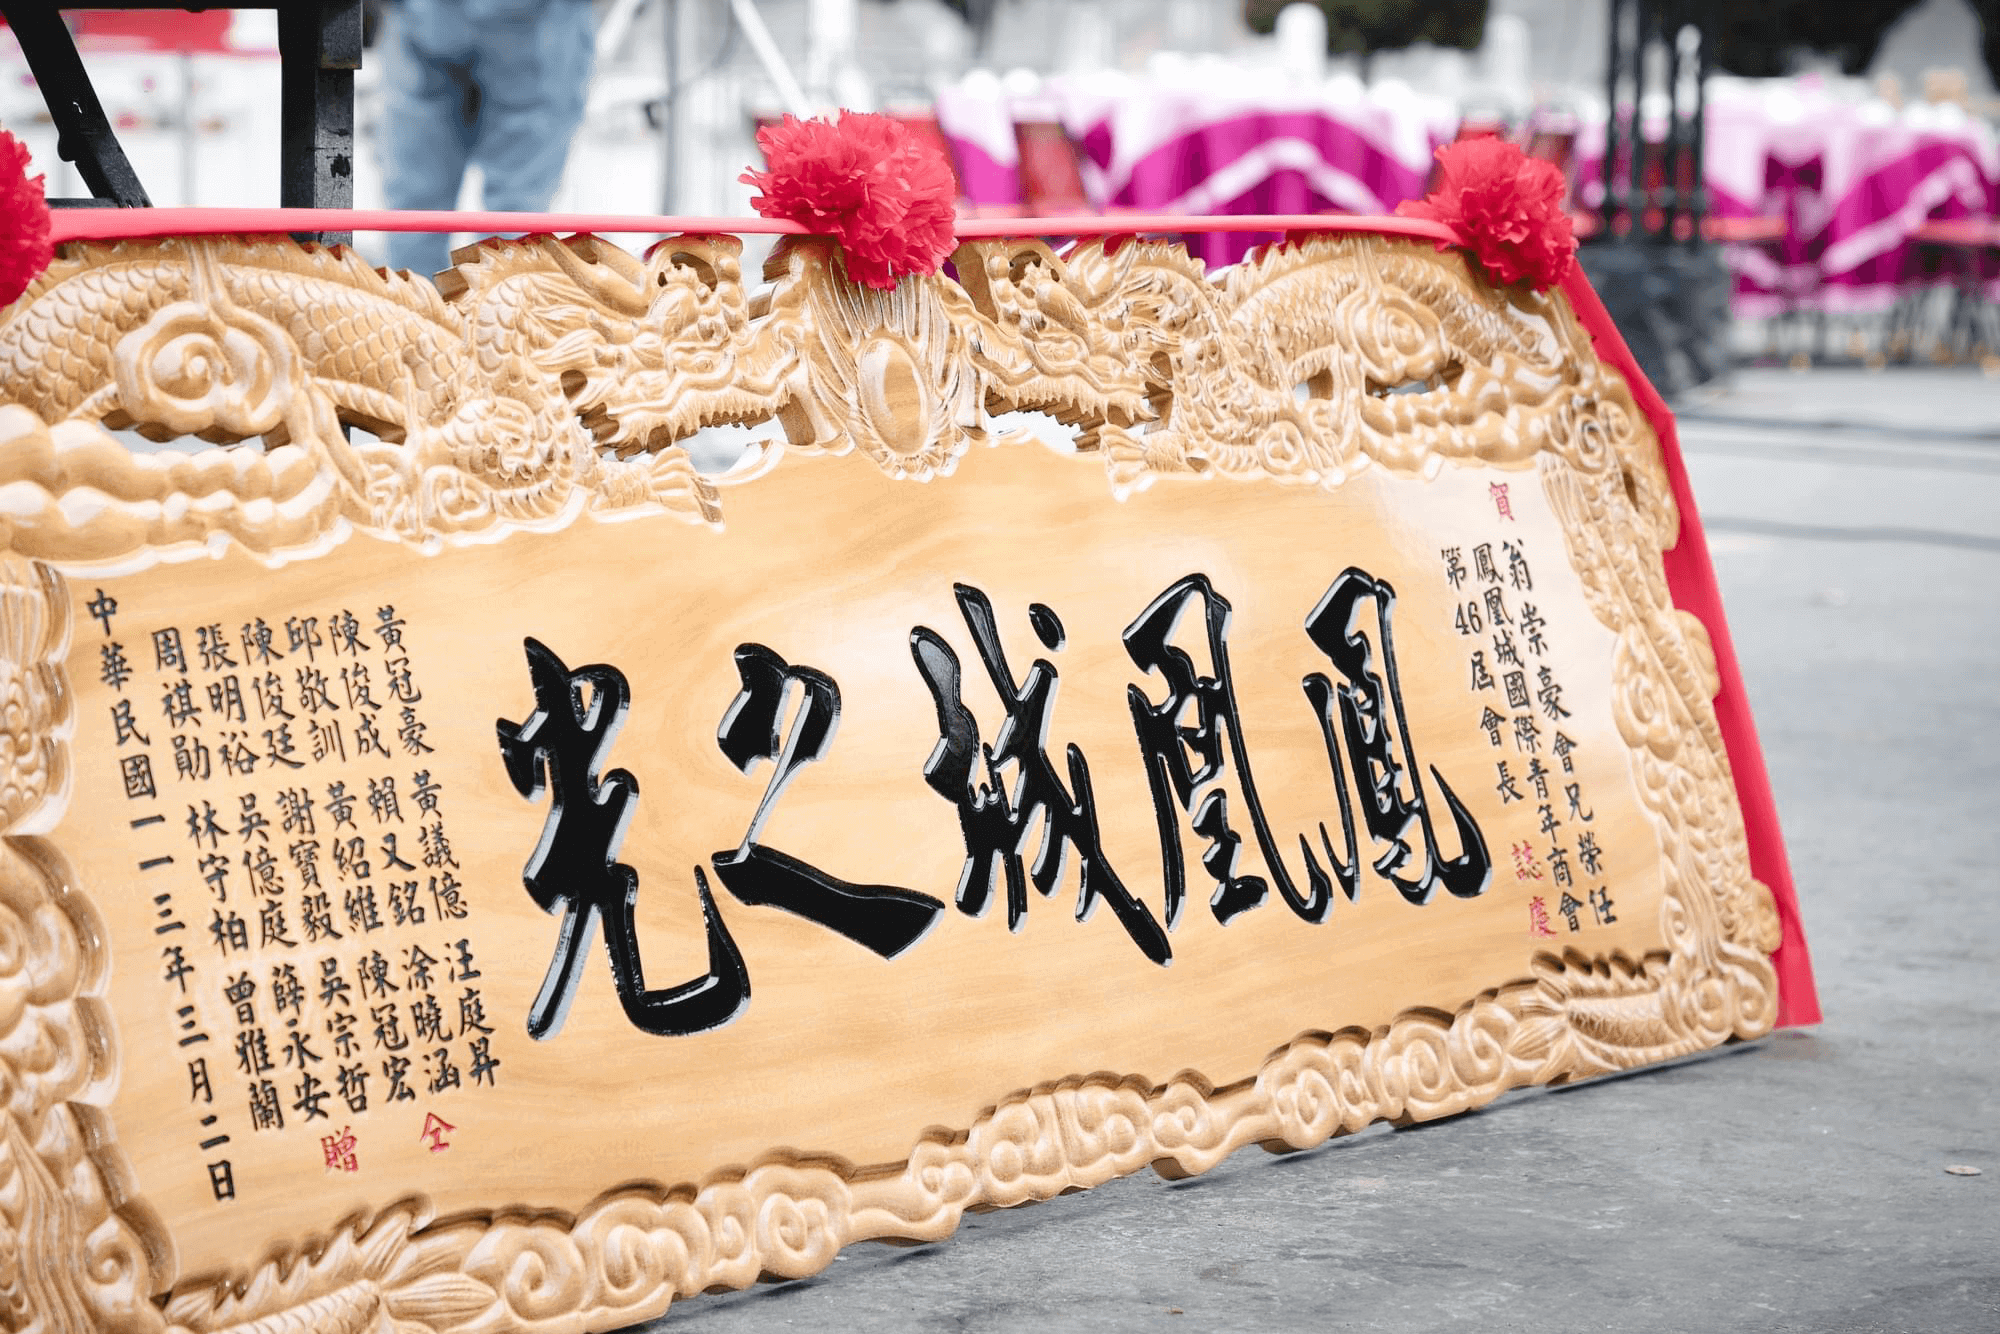 賀
翁崇豪會兄榮任
鳳凰城國際青年商會
第46屆會長
誌慶
鳳凰城之光
黃冠豪 黃議億 汪庭昇
陳俊成 賴又銘 涂曉涵
邱敬訓 黃紹維 陳冠宏
陳俊廷 謝寶毅 吳宗哲
張明裕 吳億庭 薛永安
周祺勛 林守柏 曾雅蘭
仝
贈
中華民國一一三年三月二日